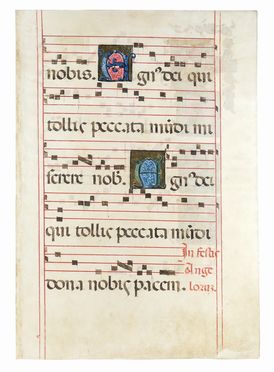 nobis. Agn' dei qui
tollis peccata mūdi mi
serere nob. Agn' dei
qui tollis peccata mūdi
In festis
Ange
dona nobis pacem. lorum